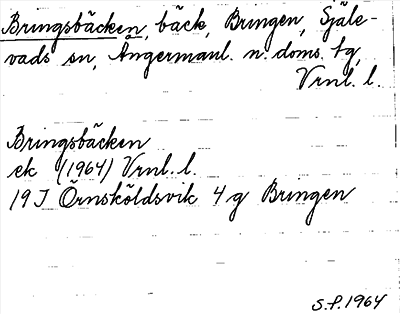 Bringsbäcken, bäck, Bringen, Själe-
vads sn, Ångermanl. n. doms. tg,
Vrnl. l.
Bringsbäcken
ek (1964) Vrnl. l.
19 J Örnsköldsvik 4 g Bringen
S.P. 1964